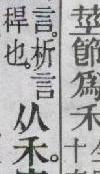 莖節爲禾十
言。析言
稈也。
从禾。